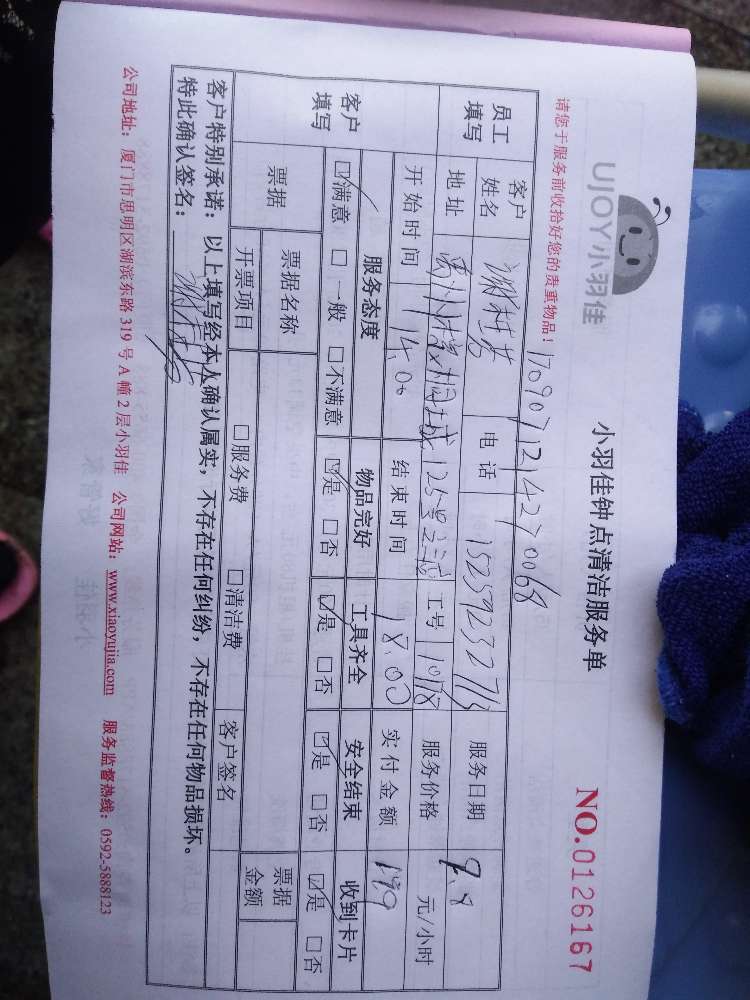 UJOY小羽佳
小羽佳钟点清洁服务单
NO.0126167
请您于服务前收拾好您的贵重物品！ 1709071214270068
员工填写 客户姓名 电话 服务日期 9.8
地址 125号 工号 服务价格 元/小时
开始时间 14.00 结束时间 18.00 实付金额 199
客户填写 服务态度 物品完好 工具齐全 安全结束 收到卡片
☑满意 □一般 □不满意 ☑是 □否 ☑是 □否 ☑是 □否 ☑是 □否
票据 票据名称 票据金额
开票项目 □服务费 □清洁费 客户签名
客户特别承诺：以上填写经本人确认属实，不存在任何纠纷，不存在任何物品损坏。
特此确认签名：
公司地址：厦门市思明区湖滨东路 319 号 A 幢 2 层小羽佳 公司网站：www.xiaoyujia.com 服务监督热线：0592-5888123